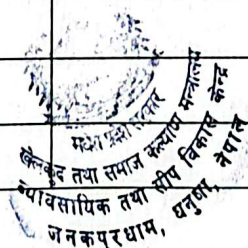 खेलकूद तथा समाज कल्याण मन्त्रालय
व्यावसायिक तथा सीप विकास केन्द्र
जनकपुरधाम, धनुषा, नेपाल